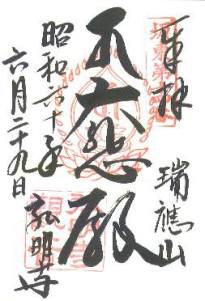 奉拝
坂東第
瑞應山
大悲殿
昭和六十年
六月二十九日
弘明寺